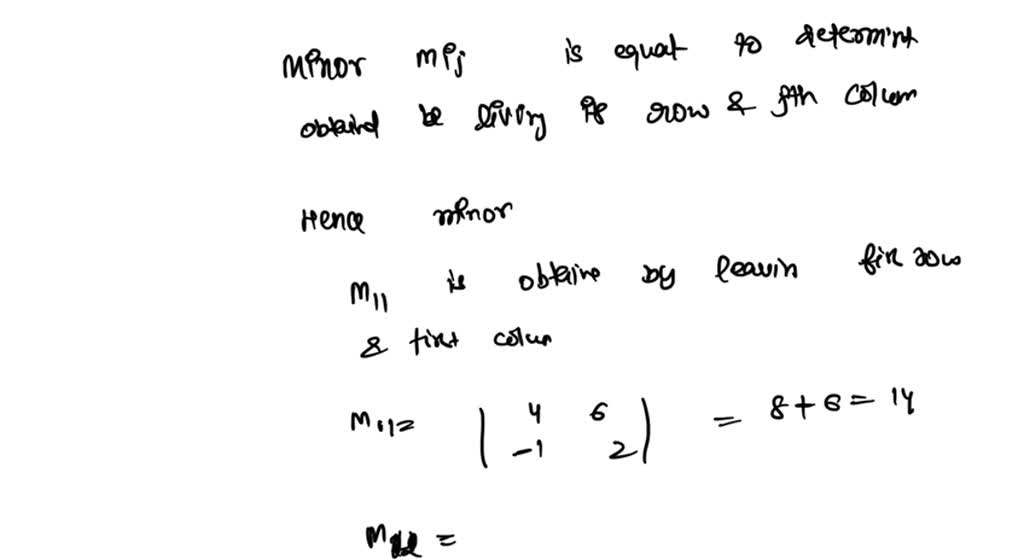 Minor Mij is equal to determint
obtaind be living ith row & jth colum
Hence minor
M11 is obtaine by leavin firs row
& first colum
M11 = | 4 6 | = 8 + 6 = 14
| -1 2 |
M =